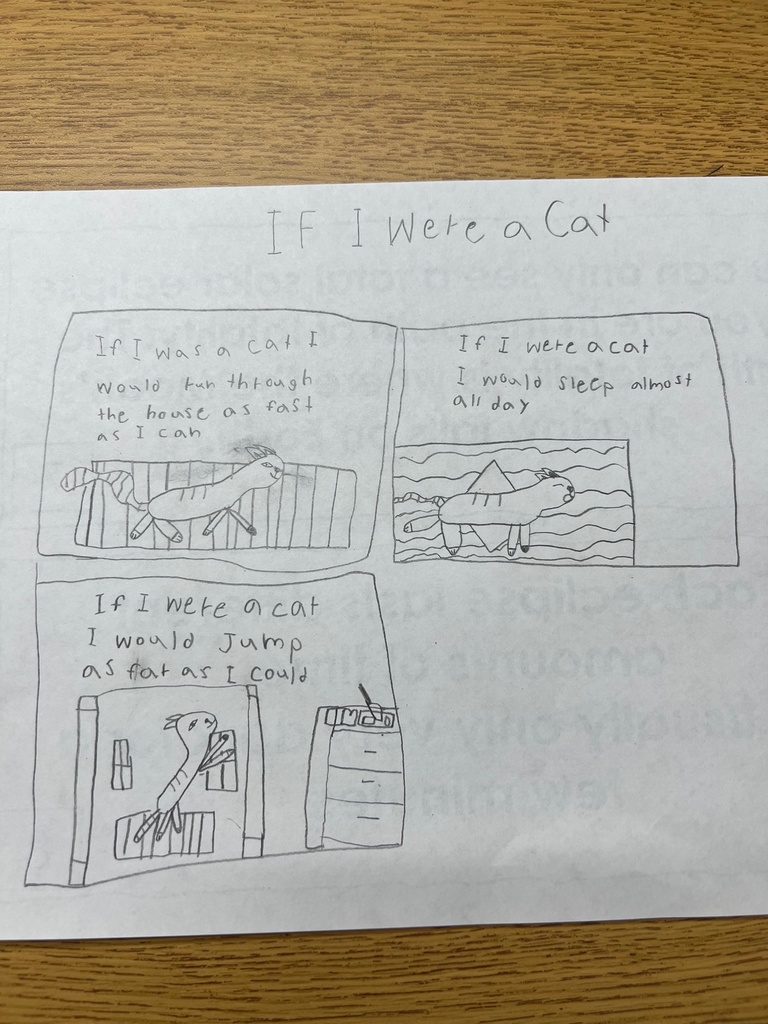 If I Were a Cat
If I was a cat I
would run through
the house as fast
as I can
If I were a cat
I would sleep almost
all day
If I were a cat
I would Jump
as far as I could